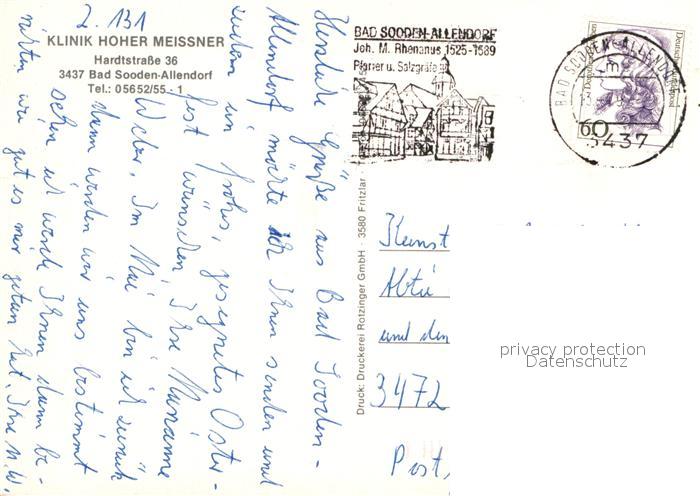 Z. 131
KLINIK HOHER MEISSNER
Hardtstraße 36
3437 Bad Sooden-Allendorf
Tel.: 05652/55 - 1
Herzliche Grüße aus Bad Sooden-
Allendorf möchte ich Ihnen senden und
zudem ein frohes, gesegnetes Oster-
fest wünschen. Ihre Marianne
Weber. Im Mai bin ich zurück
dann werden wir uns bestimmt
sehen ich werde Ihnen dann be-
richten wie gut es mir getan hat. Ihre M.W.
Druck: Druckerei Rotzinger GmbH · 3580 Fritzlar
BAD SOODEN-ALLENDORF
Joh. M. Rhenanus 1525-1589
Pfarrer u. Salzgräfe
BAD SOODEN-ALLENDORF
3437
60
Deutsche Bundespost
Kunst
Abtei
und den
3472
Post,
privacy protection
Datenschutz